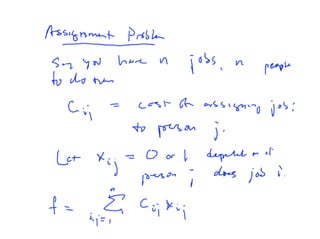 Assignment Problem
Say you have n jobs, n people
to do them
C_{ij} = cost of assigning job i
to person j.
Let x_{ij} = 0 or 1 if
person j does job i.
f = \sum_{i,j=1}^{n} C_{ij} x_{ij}